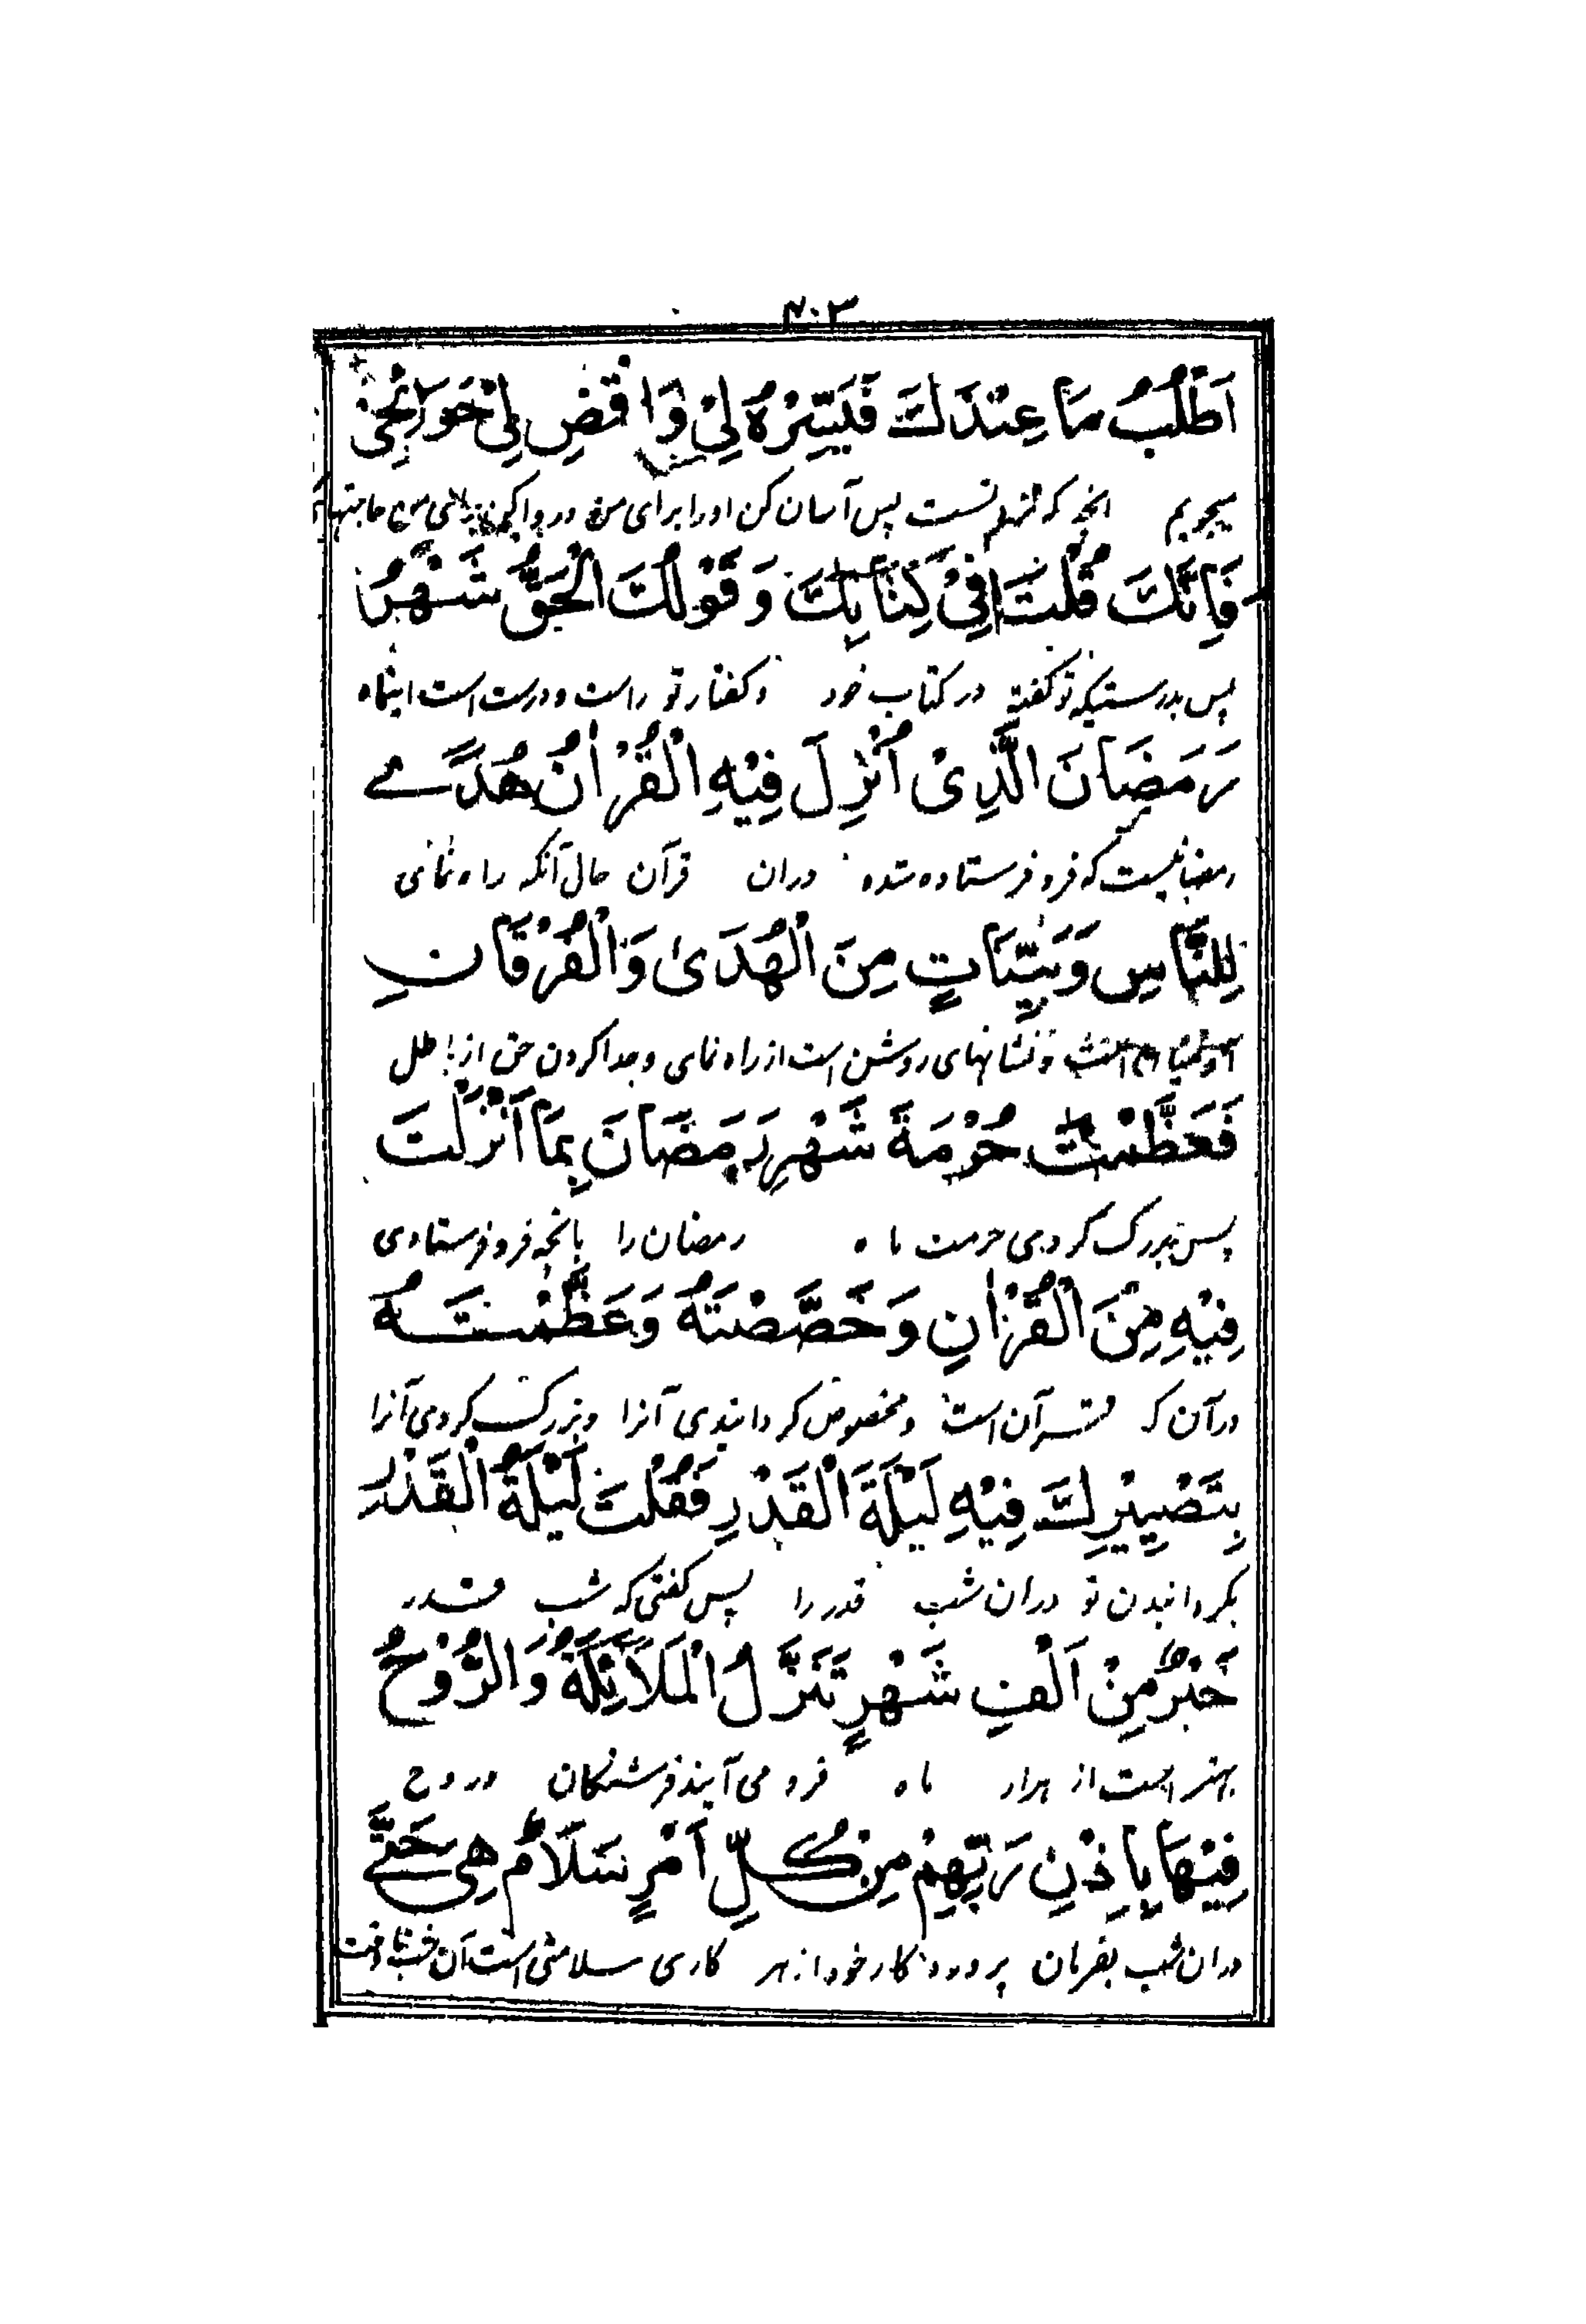 ۴۰۳
اَطْلُبُ مَا عِنْدَكَ فَيَسِّرْهُ لِیْ وَاقْضِ لِیْ حَوَائِجِیْ
میجویم انچه که نزد تست پس آسان کن اورا برای من و روا کن برای من حاجتهای
فَاِنَّكَ قُلْتَ فِیْ كِتَابِكَ وَ قَوْلُكَ الْحَقُّ شَهْرُ
پس بدرستیکه تو گفتۀ در کتاب خود و گفتار تو راست و درست است اینماه
رَمَضَانَ الَّذِیْ اُنْزِلَ فِيْهِ الْقُرْاٰنُ هُدًے
رمضانیست که فرو فرستاده شده دران قرآن حال آنکه راه نمای
لِلنَّاسِ وَبَيِّنَاتٍ مِنَ الْهُدَیٰ وَالْفُرْقَانِ
و نشانهای روشن است از راه نمای و جدا کردن حق از باطل
فَعَظَّمْتَ حُرْمَةَ شَهْرِ رَمَضَانَ بِمَا اَنْزَلْتَ
پس بزرگ کردی حرمت ماه رمضان را بانچه فرو فرستادی
فِيْهِ مِنَ الْقُرْاٰنِ وَ خَصَّصْتَهُ وَعَظَّمْتَهُ
درآن که قرآن است و مخصوص گردانیدی آنرا و بزرگ کردی آنرا
بِتَصْيِيْرِكَ فِيْهِ لَيْلَةَ الْقَدْرِ فَقُلْتَ لَيْلَةُ الْقَدْرِ
بگردانیدن تو دران شب قدر را پس گفتی که شب قدر
خَيْرٌ مِنْ اَلْفِ شَهْرٍ تَنَزَّلُ الْمَلَآئِكَةُ وَالرُّوْحُ
بهتر است از هزار ماه فرو می آیند فرشتگان و روح
فِيْهَا بِاِذْنِ رَبِّهِمْ مِنْ كُلِّ اَمْرٍ سَلَامٌ هِیَ حَتّٰے
دران شب بفرمان پروردگار خود از هر کاری سلامتی است آن شب تا وقت